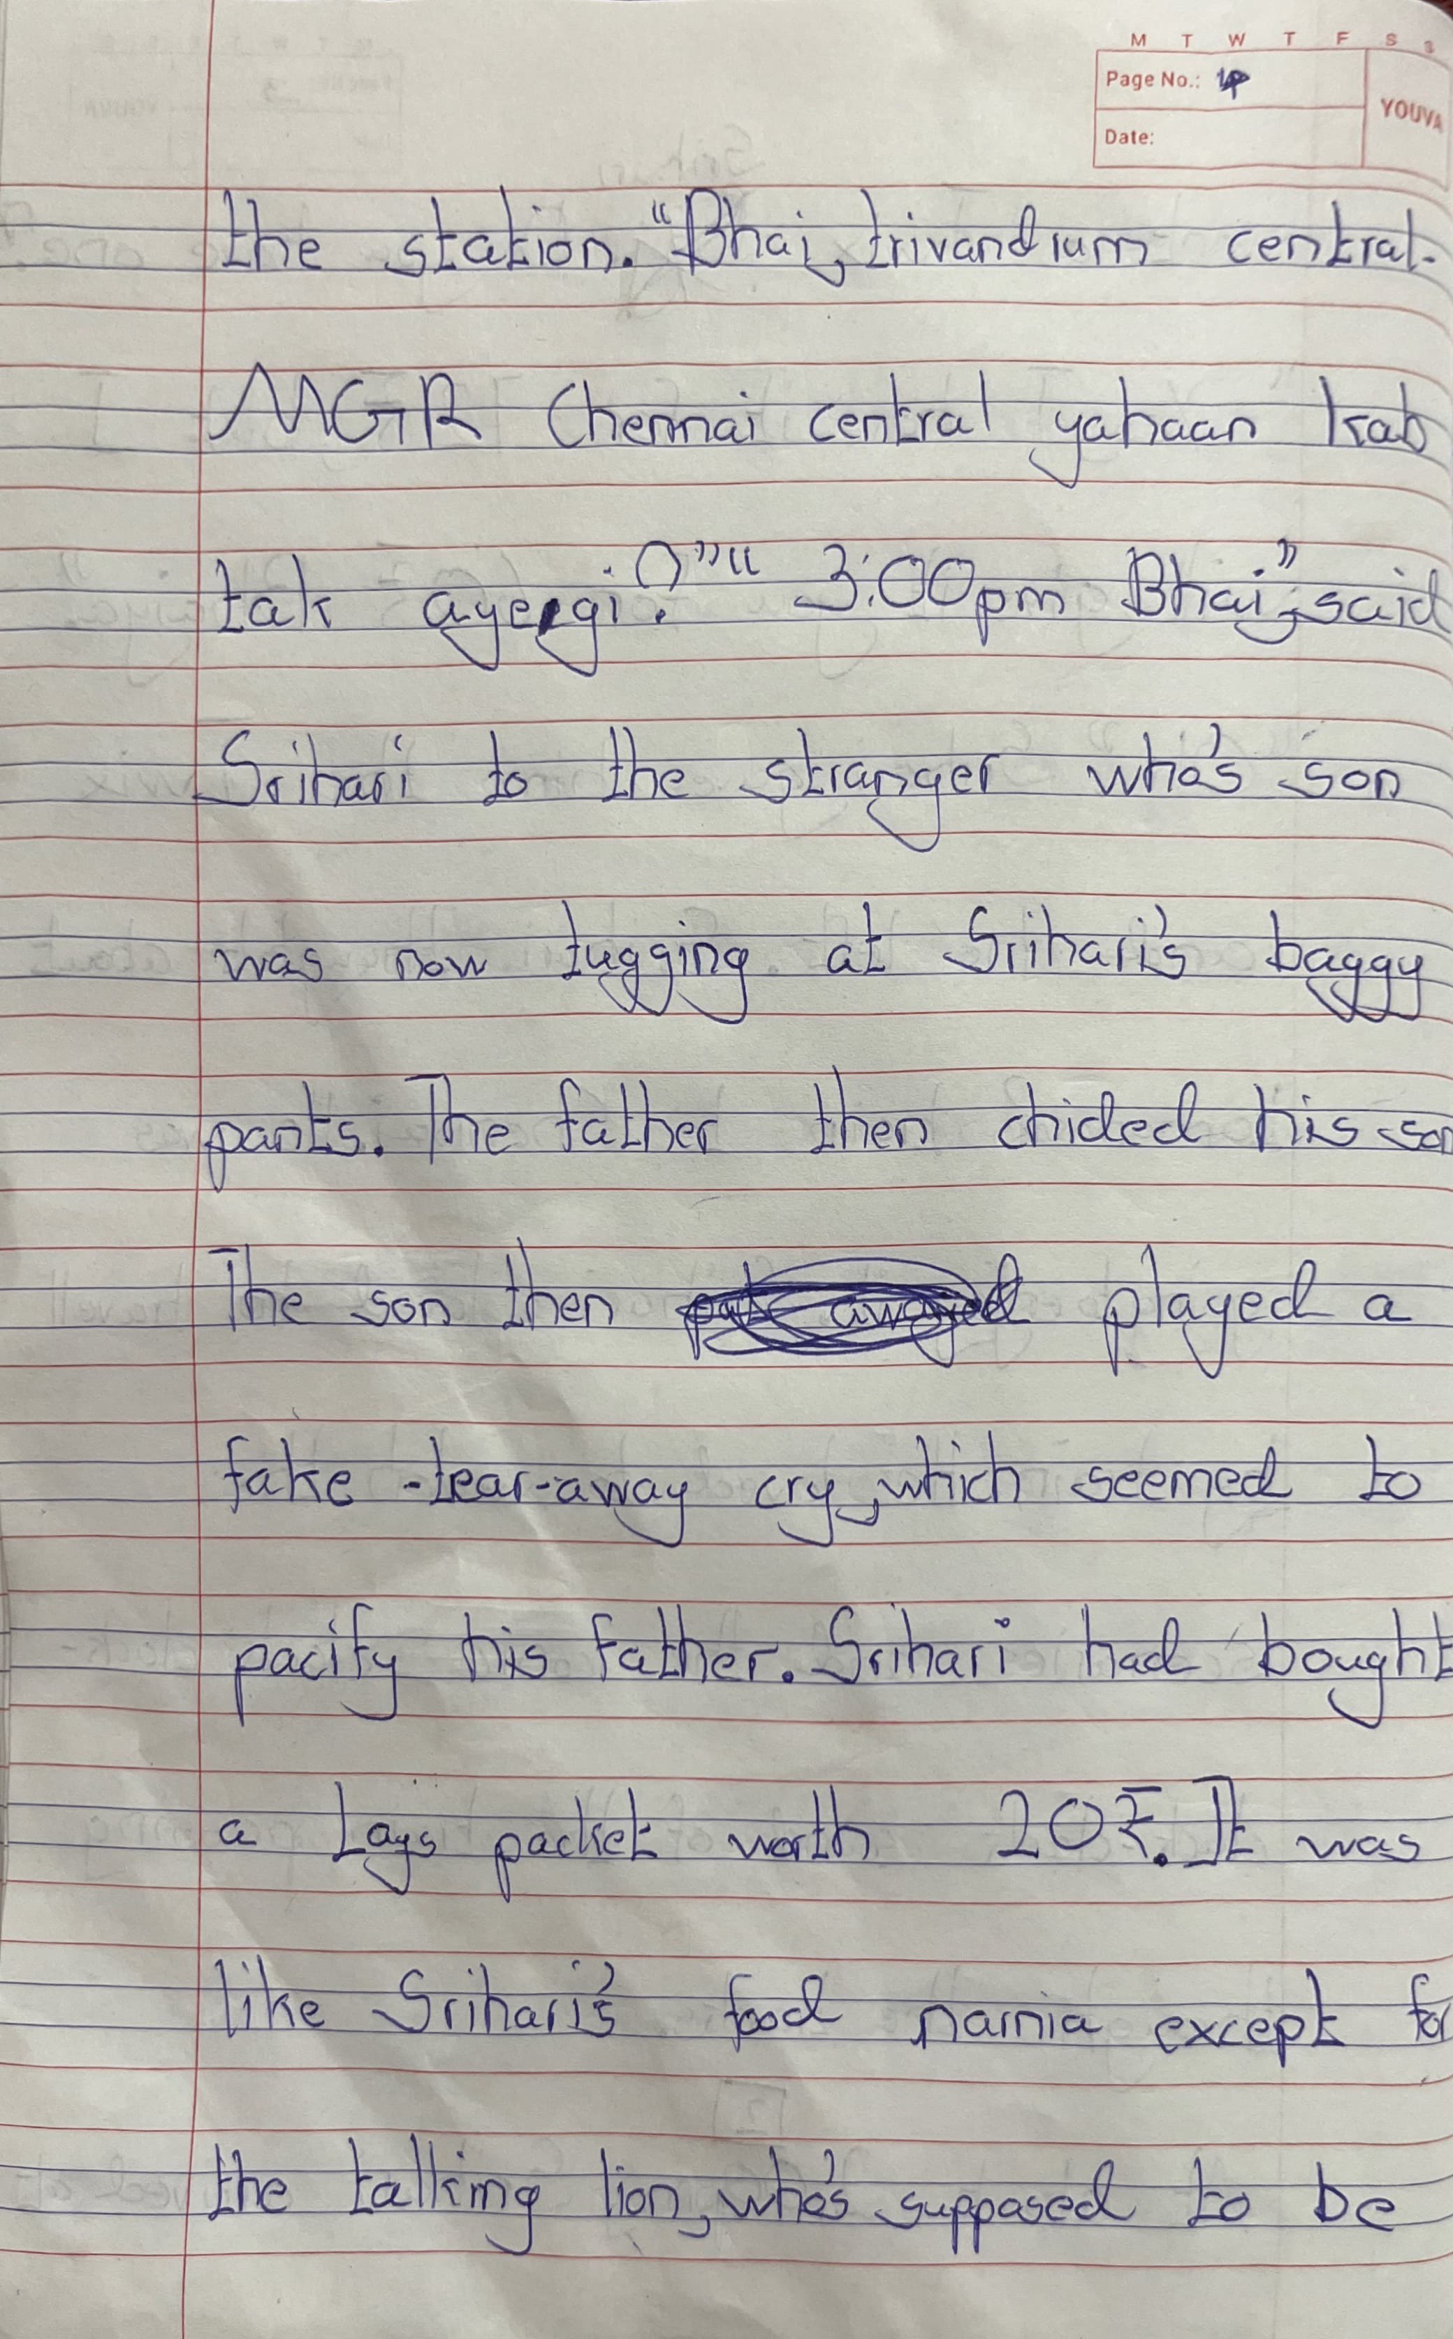 M T W T F S S
Page No.: 4
YOUVA
Date:
the station. "Bhai, trivandrum central-
MGR Chennai central yahaan kab
tak ayeegi?" "3:00pm Bhai", said
Srihari to the stranger who's son
was now tugging at Srihari's baggy
pants. The father then chided his son
The son then played a
fake -tear-away cry, which seemed to
pacify his father. Srihari had bought
a Lays packet worth 20₹. It was
like Srihari's food narnia except for
the talking lion, who's supposed to be